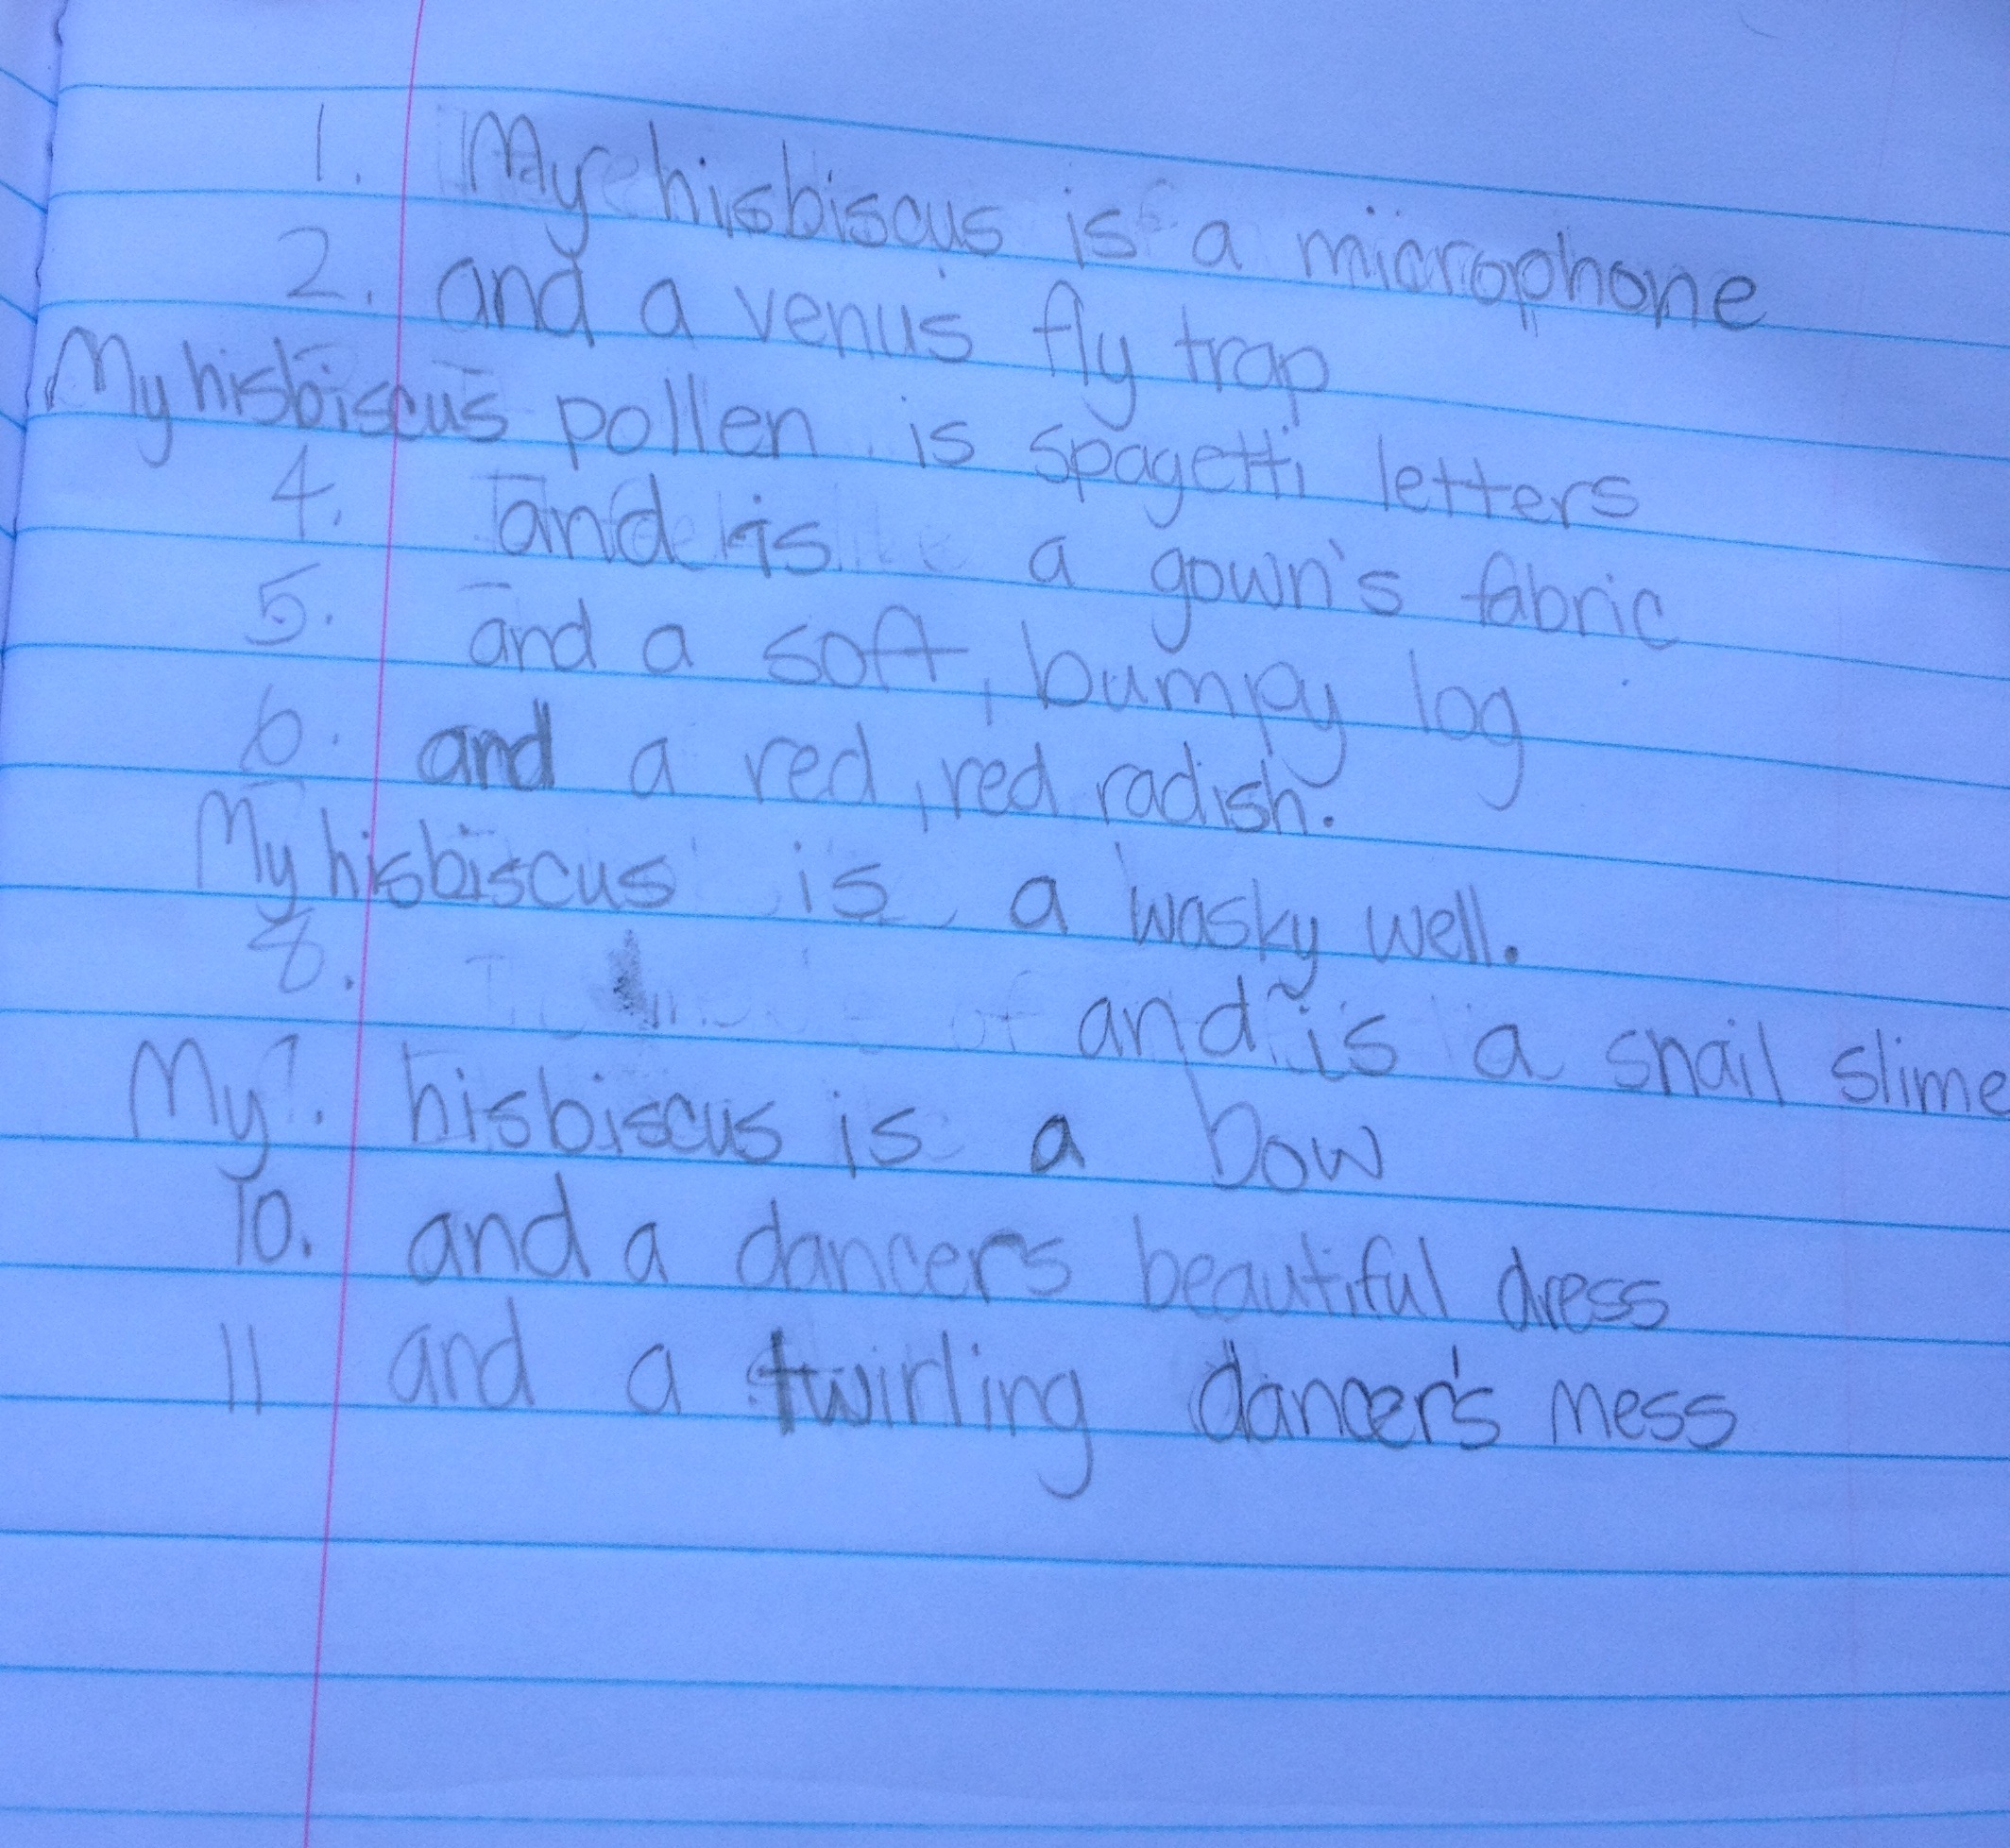 1. My hisbiscus is a microphone
2. and a venus fly trap
My hisbiscus pollen is spagetti letters
4. and is a gown's fabric
5. and a soft, bumpy log
6. and a red, red radish.
My hisbiscus is a wasky well.
8. and is a snail slime
My hisbiscus is a bow
10. and a dancers beautiful dress
11 and a twirling dancer's mess